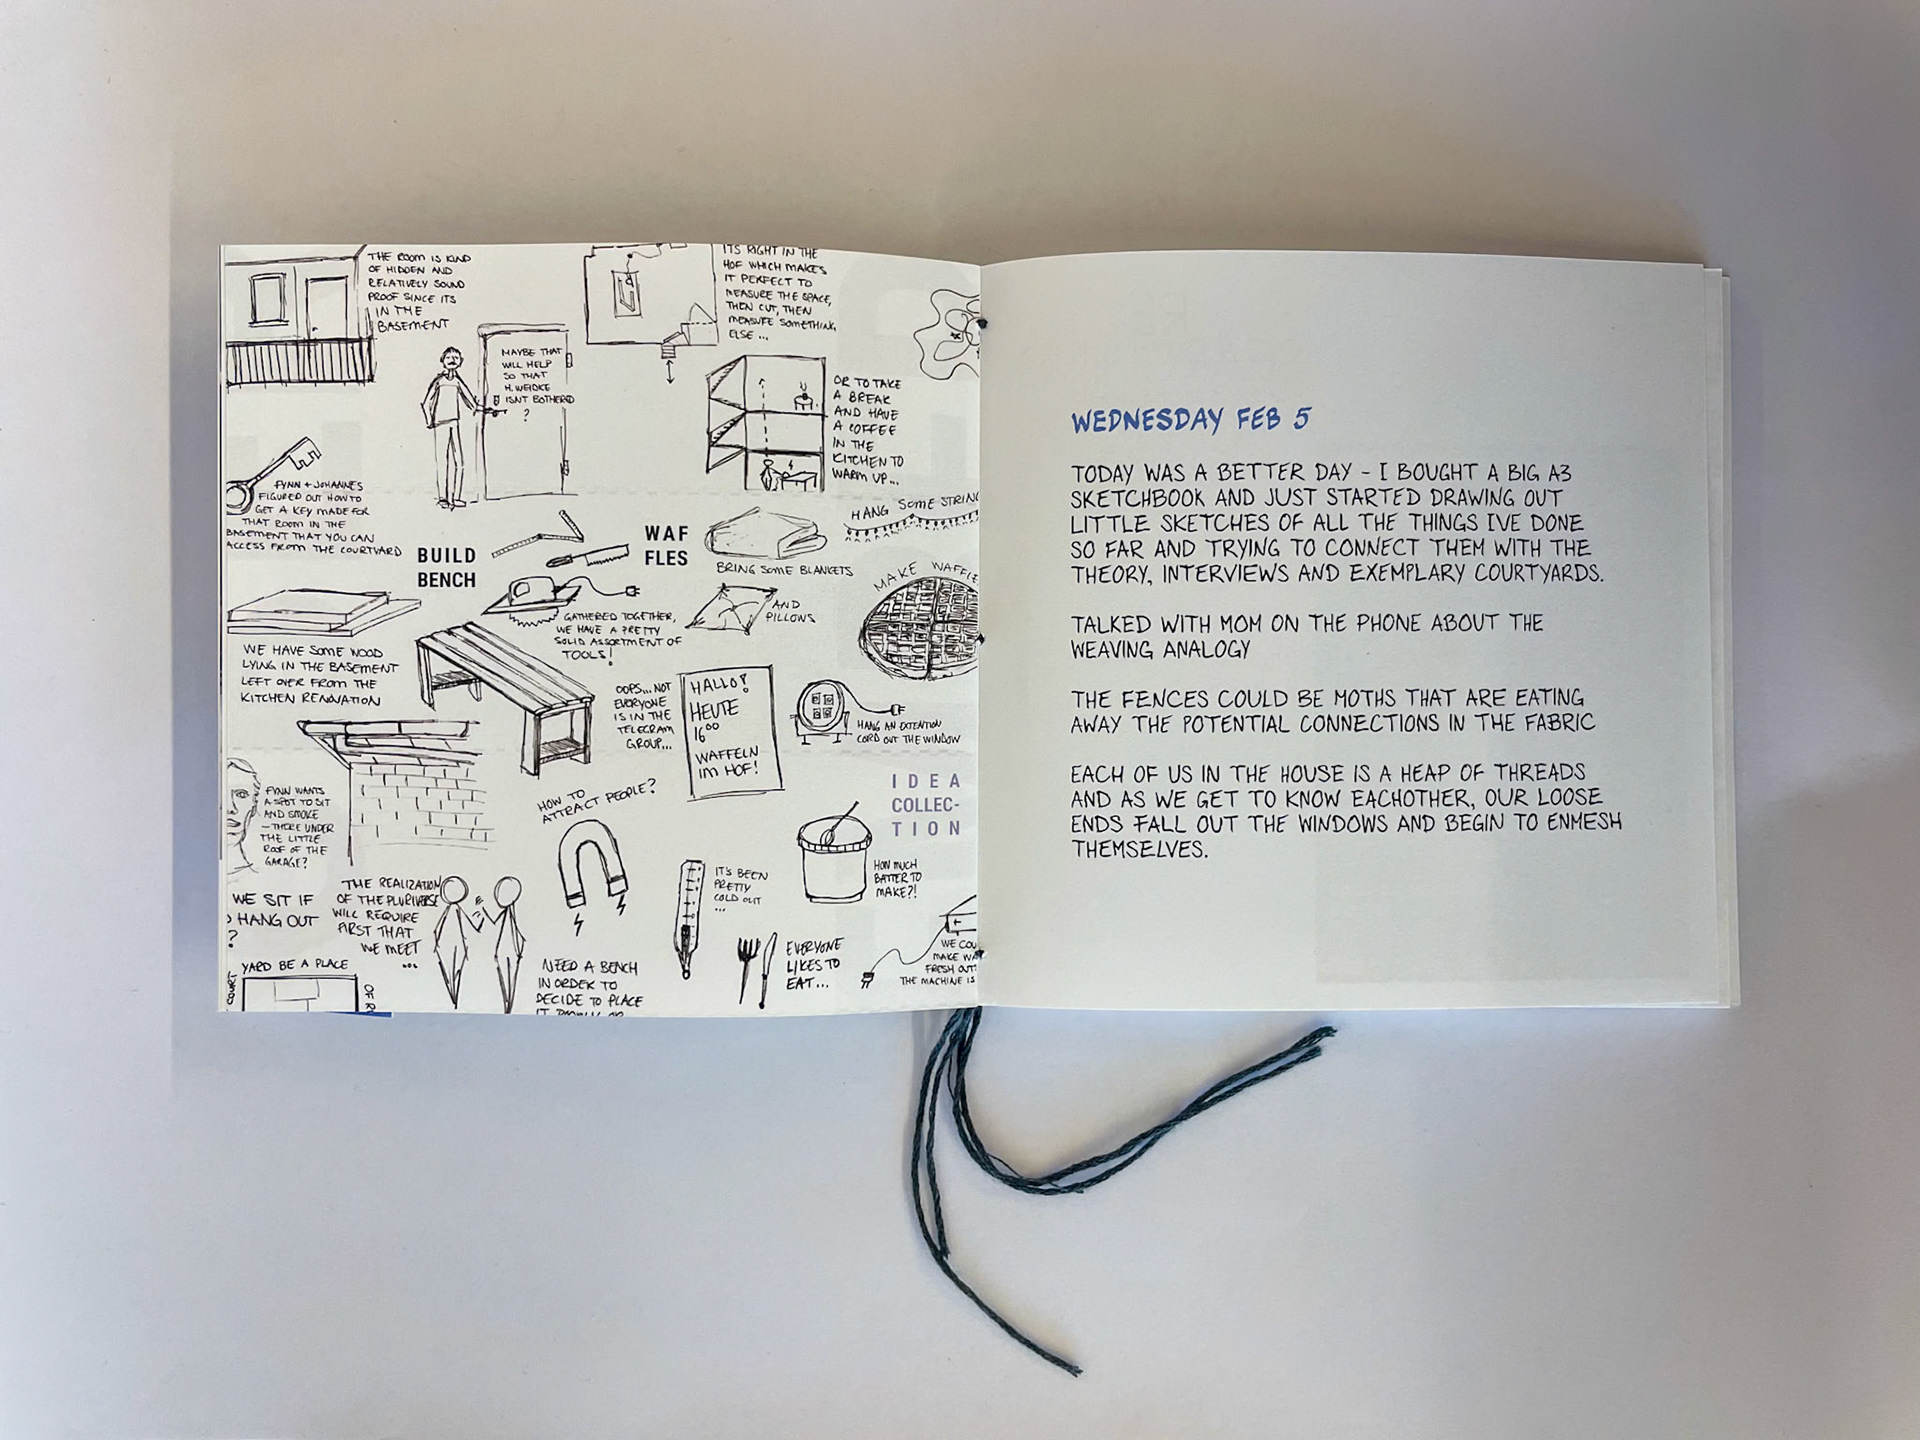 THE ROOM IS KIND
OF HIDDEN AND
RELATIVELY SOUND
PROOF SINCE ITS
IN THE
BASEMENT
ITS RIGHT IN THE
HOF WHICH MAKES
IT PERFECT TO
MEASURE THE SPACE,
THEN CUT, THEN
MEASURE SOMETHING
ELSE ...
MAYBE THAT
WILL HELP
SO THAT
H. WEIDKE
ISNT BOTHERED
?
OR TO TAKE
A BREAK
AND HAVE
A COFFEE
IN THE
KITCHEN TO
WARM UP...
FYNN + JOHANNES
FIGURED OUT HOW TO
GET A KEY MADE FOR
THAT ROOM IN THE
BASEMENT THAT YOU CAN
ACCESS FROM THE COURTYARD
BUILD
BENCH
WAF
FLES
HANG SOME STRING
BRING SOME BLANKETS
AND
PILLOWS
MAKE WAFFLE
GATHERED TOGETHER,
WE HAVE A PRETTY
SOLID ASSORTMENT OF
TOOLS!
WE HAVE SOME WOOD
LYING IN THE BASEMENT
LEFT OVER FROM THE
KITCHEN RENOVATION
OOPS... NOT
EVERYONE
IS IN THE
TELEGRAM
GROUP...
HALLO!
HEUTE
16⁰⁰
WAFFELN
IM HOF!
HANG AN EXTENTION
CORD OUT THE WINDOW
IDEA
COLLEC-
TION
FYNN WANTS
A SPOT TO SIT
AND SMOKE
– THERE UNDER
THE LITTLE
ROOF OF THE
GARAGE?
HOW TO
ATTRACT PEOPLE?
HOW MUCH
BATTER TO
MAKE?!
IT'S BEEN
PRETTY
COLD OUT
...
WE SIT IF
HANG OUT
?
THE REALIZATION
OF THE PLURIVERSE
WILL REQUIRE
FIRST THAT
WE MEET
...
YARD BE A PLACE
COURT
NEED A BENCH
IN ORDER TO
DECIDE TO PLACE
EVERYONE
LIKES TO
EAT...
WE COU
MAKE WA
FRESH OUT
THE MACHINE IS
WEDNESDAY FEB 5
TODAY WAS A BETTER DAY - I BOUGHT A BIG A3
SKETCHBOOK AND JUST STARTED DRAWING OUT
LITTLE SKETCHES OF ALL THE THINGS IVE DONE
SO FAR AND TRYING TO CONNECT THEM WITH THE
THEORY, INTERVIEWS AND EXEMPLARY COURTYARDS.
TALKED WITH MOM ON THE PHONE ABOUT THE
WEAVING ANALOGY
THE FENCES COULD BE MOTHS THAT ARE EATING
AWAY THE POTENTIAL CONNECTIONS IN THE FABRIC
EACH OF US IN THE HOUSE IS A HEAP OF THREADS
AND AS WE GET TO KNOW EACHOTHER, OUR LOOSE
ENDS FALL OUT THE WINDOWS AND BEGIN TO ENMESH
THEMSELVES.